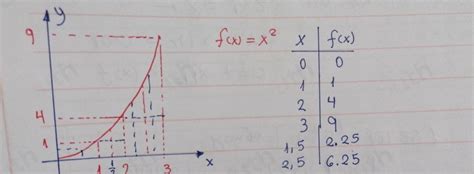 y
9
4
1
1 3/2 2 3
x
f(x) = x²
x f(x)
0 0
1 1
2 4
3 9
1,5 2.25
2,5 6.25